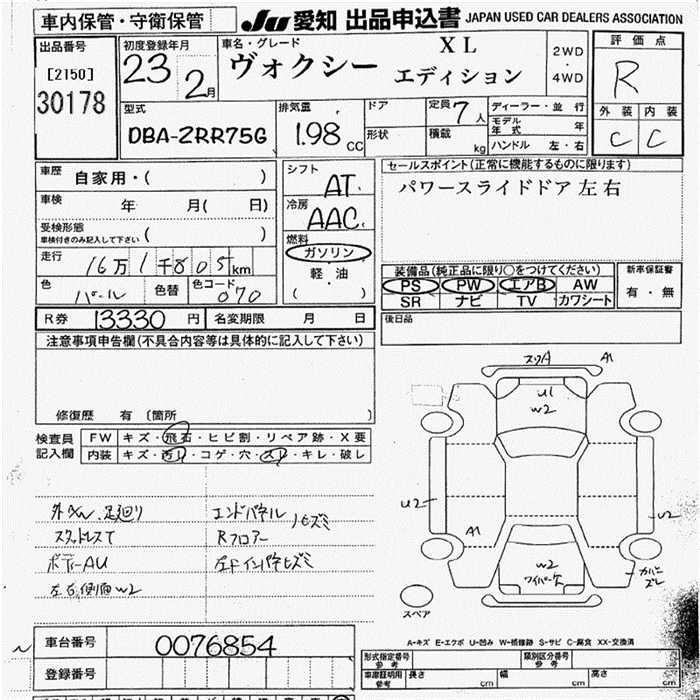 車内保管・守衛保管
JU 愛知 出品申込書 JAPAN USED CAR DEALERS ASSOCIATION
出品番号
[2150]
30178
初度登録年月
23 2月
車名・グレード
ヴォクシー XL エディション
2WD
・
4WD
評価点
R
外装 内装
C C
型式
DBA-ZRR75G
排気量
1.98 CC
ドア
形状
定員 7人
積載 kg
ディーラー・並行
モデル年式 年
ハンドル 左・右
車歴 自家用・( )
車検 年 月( 日)
受検形態
車検付きのみ記入して下さい ( )
走行 16万1千805km
色 パール 色替 色コード 070
シフト AT
冷房 AAC
燃料
ガソリン
軽・油
( )
セールスポイント(正常に機能するものに限ります)
パワースライドドア 左右
装備品(純正品に限り○をつけてください)
PS PW エアB AW
SR ナビ TV カワシート
新車保証書
有・無
R券 13330円 名変期限 月 日
後日品
注意事項申告欄(不具合内容等は具体的に記入して下さい)
修復歴 有〔箇所 〕
検査員記入欄
FW キズ・飛石・ヒビ割・リペア跡・X要
内装 キズ・汚レ・コゲ・穴・スレ・キレ・破レ
足廻り
スタットレスT
ボディーAU
左右側面W2
エンドパネル
Rフロアー
ハヒズミ
左Fインパネヒズミ
スリA A1
U1
W2
U2
U2
A1
W2
ワイパー欠
カバーズレ
スペア
A-キズ E-エクボ U-凹み W-補修跡 S-サビ C-腐食 XX-交換済
車台番号 0076854
登録番号
型式指定番号 参考
類別区分番号 参考
車庫証明用 参考
長さ cm 幅 cm 高さ cm